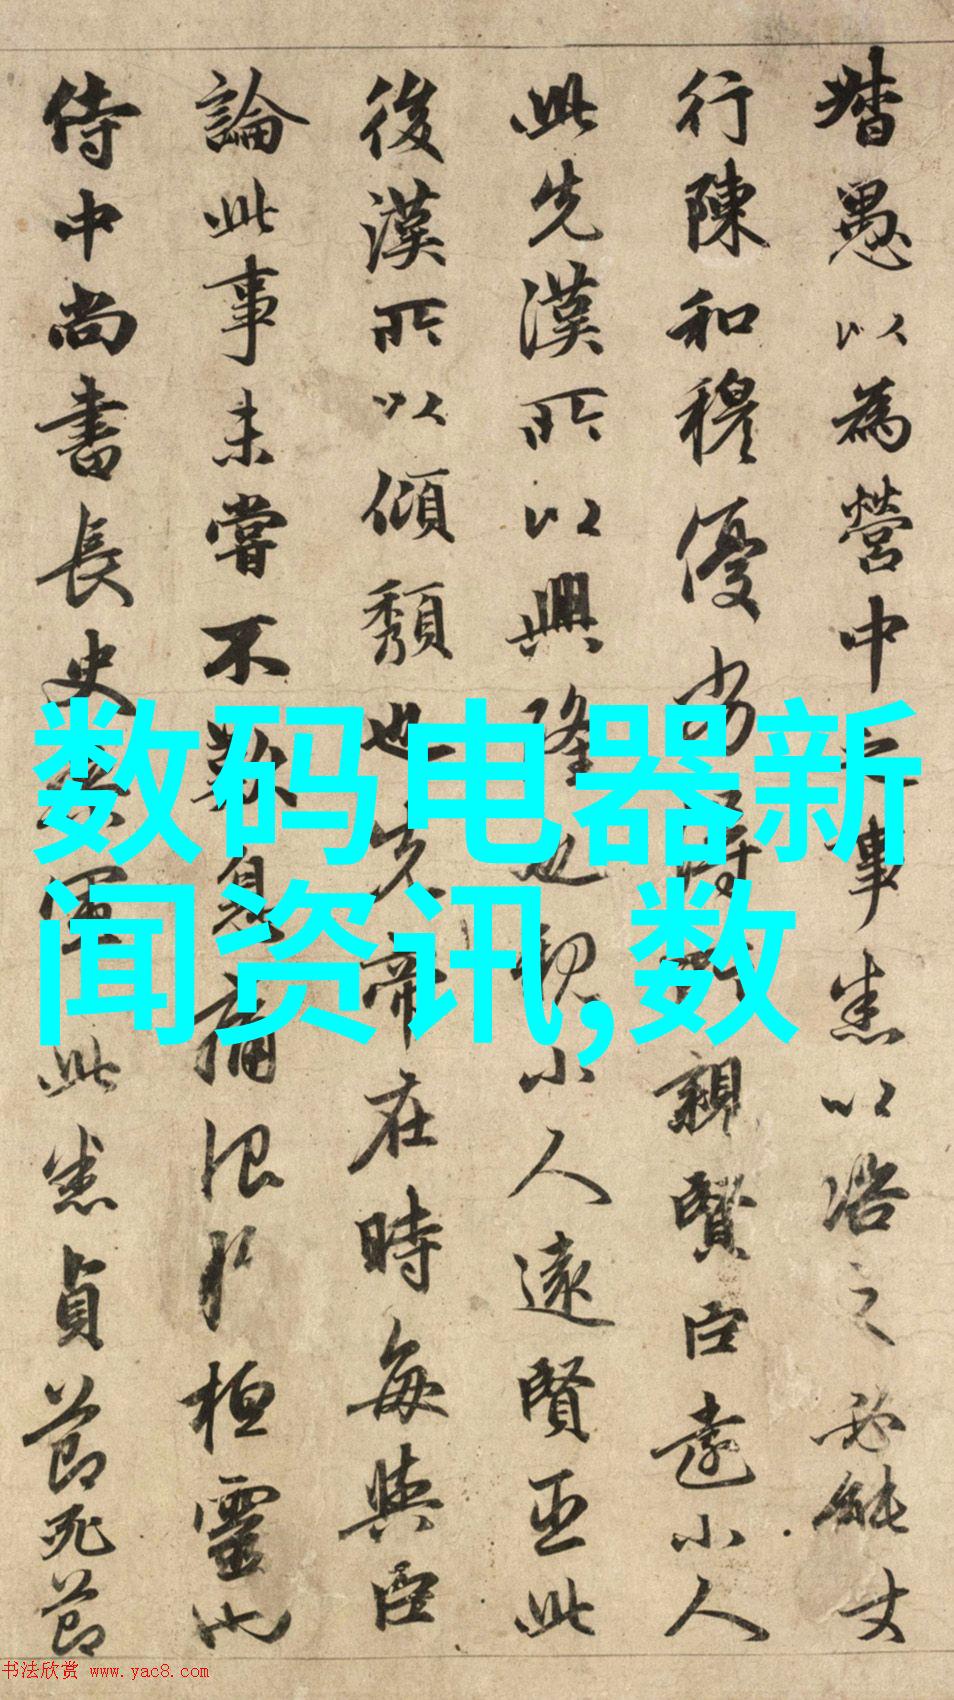 督愚以為營中之事悉以治之必能
行陳和穆優劣得所親賢臣遠小人
此先漢所以興隆也親小人遠賢臣此
後漢所以傾頹也先帝在時每與臣
論此事未嘗不歎息痛恨於桓靈也
侍中尚書長史參軍此悉貞節死節
数码电器新
闻资讯,数
书法欣赏 www.yac8.com